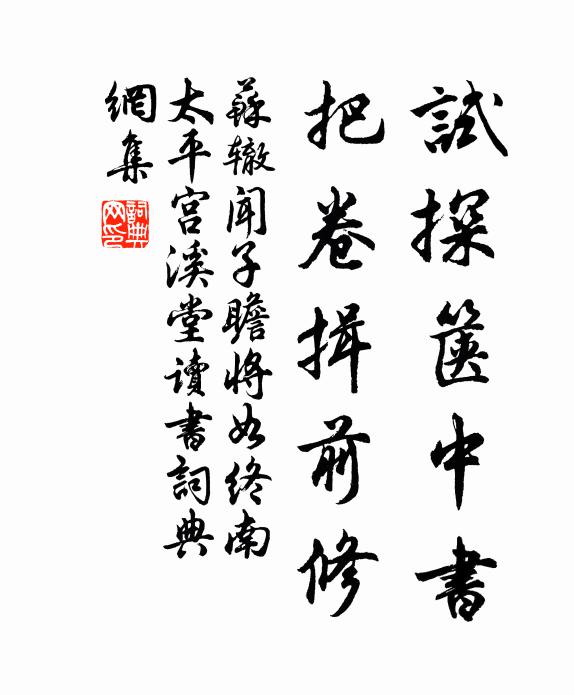 試探篋中書
把卷揖前修
蘇轍聞子瞻將如終南
太平宮溪堂讀書詞典
網集
詞典網印